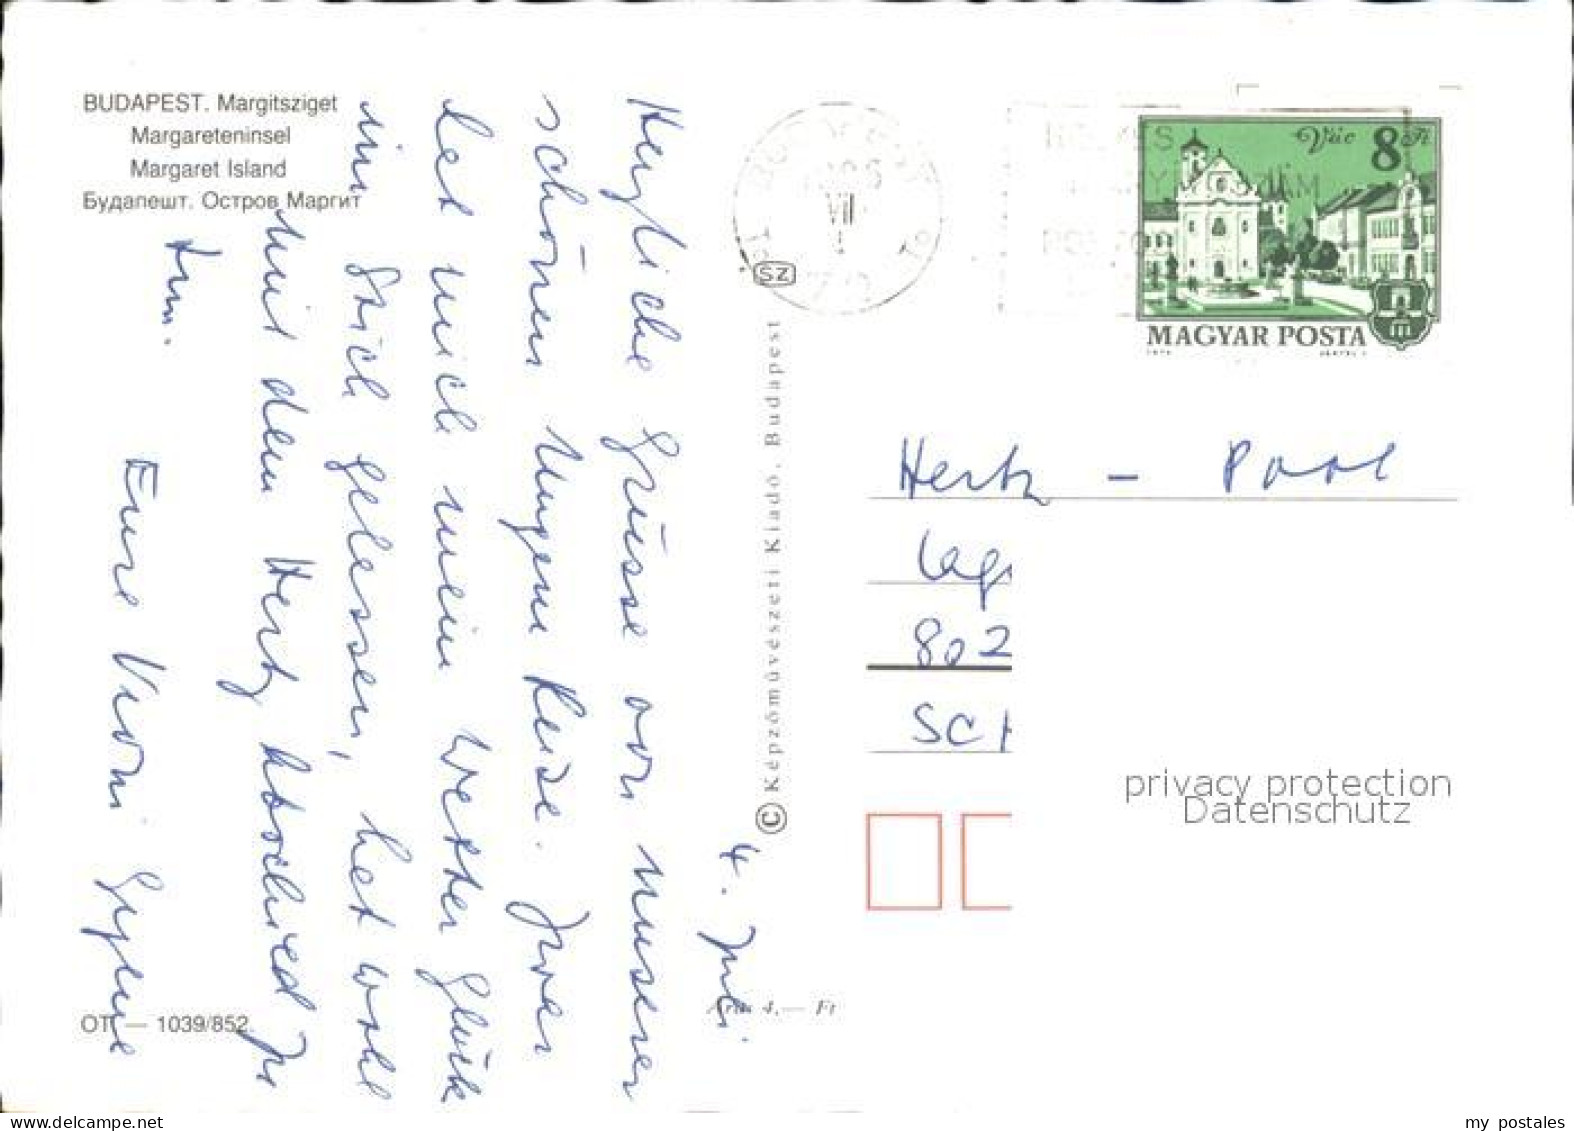 BUDAPEST. Margitsziget
Margareteninsel
Margaret Island
Будапешт. Остров Маргит
4. Juli
Herzliche Grüsse von unserer
schönen Ungarn Reise. Zwar
hat mich mein Wetter Glück
im Stich gelassen, hat wohl
mit dem Hertz Abschied zu
tun.
Eure Vroni
OT — 1039/852
SZ
© Képzőművészeti Kiadó, Budapest
Ára: 4,— Ft
Vác 8 Ft
MAGYAR POSTA
Hertz - Pool
Lag
802
SCH
privacy protection
Datenschutz
my postales